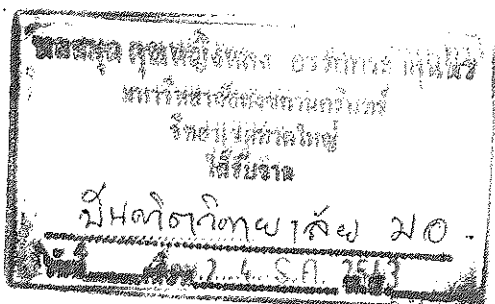 หอสมุด คุณหญิงหลง อรรถกระวีสุนทร
มหาวิทยาลัยสงขลานครินทร์
วิทยาเขตหาดใหญ่
ได้รับจาก
บัณฑิตวิทยาลัย มอ.
2 4 ธ.ค. 2543